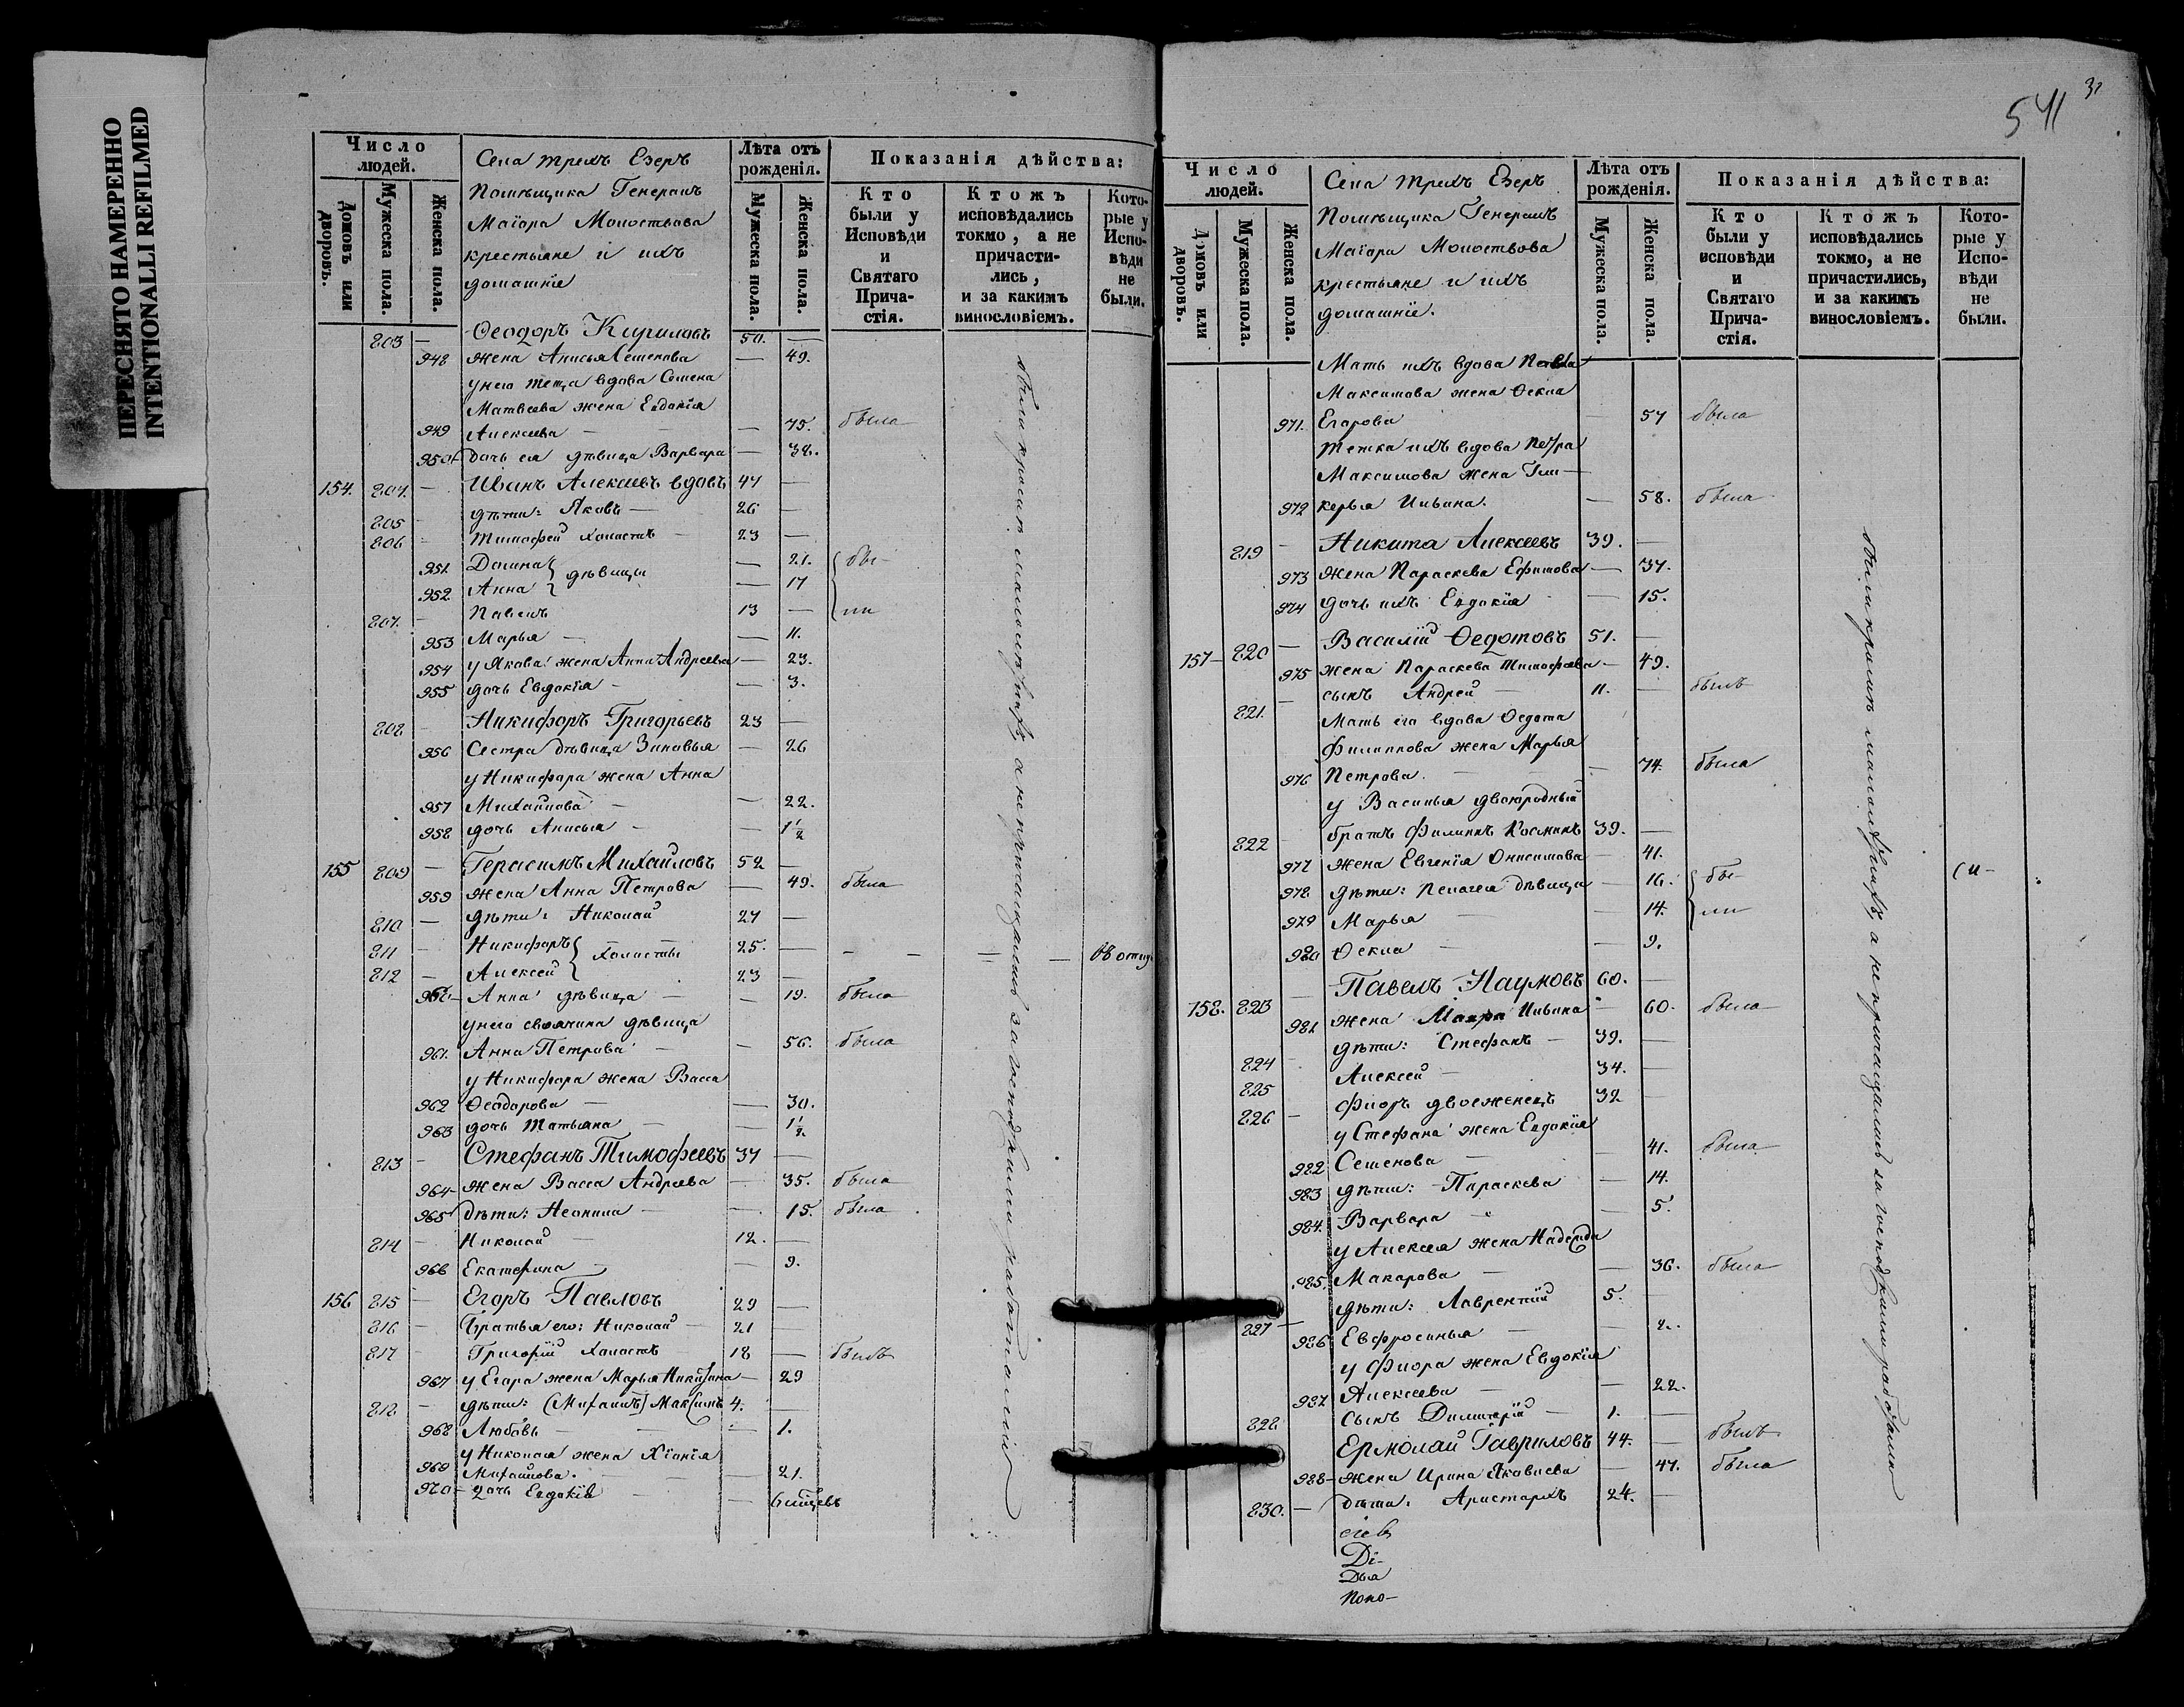 ПЕРЕСНЯТО НАМЕРЕННО
INTENTIONALLI REFILMED
Число людей.
Домовъ или дворовъ.
Мужеска пола.
Женска пола.
Села трехъ Езеръ
Помѣщика Генералъ
Маіора Молоствова
крестьяне и ихъ
домашніе
Лѣта отъ рожденія.
Мужеска пола.
Женска пола.
Показанія дѣйства:
Кто были у Исповѣди и Святаго Причастія.
Ктожъ исповѣдались токмо, а не причастились, и за какимъ винословіемъ.
Которые у Исповѣди не были.
803 — Ѳеодоръ Кириловъ 50. —
948 жена Анисья Семенова — 49.
у него теща вдова Семена
Матвеева жена Евдокія
949 Алексеева — — 75. была
950 дочь ея дѣвица Варвара — 38.
154. 804. — Иванъ Алексеевъ вдовъ 47 —
805 — дѣти: Яковъ — 26 —
806 — Тимофей холостъ — 23 —
951. Домна } — 21. { бы-
952 Анна } дѣвицы — 17
807. — Павелъ 13 — { ли
953 Марья — — 11.
954 у Якова жена Анна Андреева — 23.
955 дочь Евдокія — — 3.
808 — Никифоръ Григорьевъ 23 —
956 Сестра дѣвица Зиновья — 26
у Никифора жена Анна
957 Михайлова — — 22.
958 дочь Анисья — — 1 1/2
155 809 — Герасимъ Михайловъ 52 —
959 жена Анна Петрова — 49. была
810 — дѣти: Николай 27 —
811 — Никифоръ } 25. —
812 — Алексей } холосты 23 —
960 — Анна дѣвица — — 19. была
у него своячина дѣвица
961. Анна Петрова — — 56. была
у Никифора жена Васса
962 Ѳеодорова — — 30.
963 дочь Татьяна — — 1 1/2
813 — Стефанъ Тимофеевъ 37 —
964 жена Васса Андреева — 35. была
965 дѣти: Неонила — — 15. была
814 — Николай — 12. —
966 Екатерина — — 9.
156 815 — Егоръ Павловъ 29 —
816 — братья его: Николай — 21 —
817 — Григорій холостъ 18 — былъ
967 у Егора жена Марья Никитина — 29
818 — дѣти: (Михаилъ) Максимъ 4. —
968 Любовь — — 1.
у Николая жена Хіонія
969 Михайлова. — — 21.
970 — дочь Евдокія — — 6 мѣсцевъ
были кромѣ малолѣтнихъ, а не причащались за господскими работами
541
Число людей.
Домовъ или дворовъ.
Мужеска пола.
Женска пола.
Села трехъ Езеръ
Помѣщика Генералъ
Маіора Молоствова
крестьяне и ихъ
домашніе.
Лѣта отъ рожденія.
Мужеска пола.
Женска пола.
Показанія дѣйства:
Кто были у исповѣди и Святаго Причастія.
Ктожъ исповѣдались токмо, а не причастились, и за какимъ винословіемъ.
Которые у Исповѣди не были.
Мать ихъ вдова Павла
Максимова жена Ѳекла
971. Егорова — 57 была
тетка ихъ вдова Петра
Максимова жена Гли—
972 керья Ильина. — 58. была
819 — Никита Алексеевъ 39. —
973 жена Параскева Ефимова — 37.
974 дочь ихъ Евдокія — 15.
157 — 820 — Василій Ѳедотовъ 51. —
975 жена Параскева Тимофеева — 49.
821. — сынъ Андрей — 11. — былъ
Мать его вдова Ѳедота
Филиппова жена Марья
976 Петрова. — — 74. была
у Василья двоюродный
822 — братъ Филиппъ Космичъ 39. —
977 жена Евгенія Онисимова — 41.
978 дѣти: Пелагея дѣвица — 16. { бы-
979 Марья — — 14. { ли
980 Ѳекла — — 9.
158. 823 — Павелъ Наумовъ 60. —
981 жена Мавра Ильина — 60. была
824 — дѣти: Стефанъ — 39. —
825 Алексей — 34. —
826 — Флоръ двоеженецъ 32 —
у Стефана жена Евдокія
982 Семенова — — 41. была
983 дѣти: Параскева — 14.
984. Варвара — — 5.
у Алексея жена Надежда
985. Макарова — — 36. была
827 — дѣти: Лаврентій 5. —
986 Евфросинья — — 2.
у Флора жена Евдокія
987 Алексеева — — 22.
828 сынъ Димитрій — 1. —
Ермолай Гавриловъ 44. — былъ
988 — жена Ирина Яковлева — 47. была
830. — дѣти: Аристархъ 24. —
были кромѣ малолѣтнихъ, а не причащались за господскими работами
сіев
Ді-
Дья
Поно-